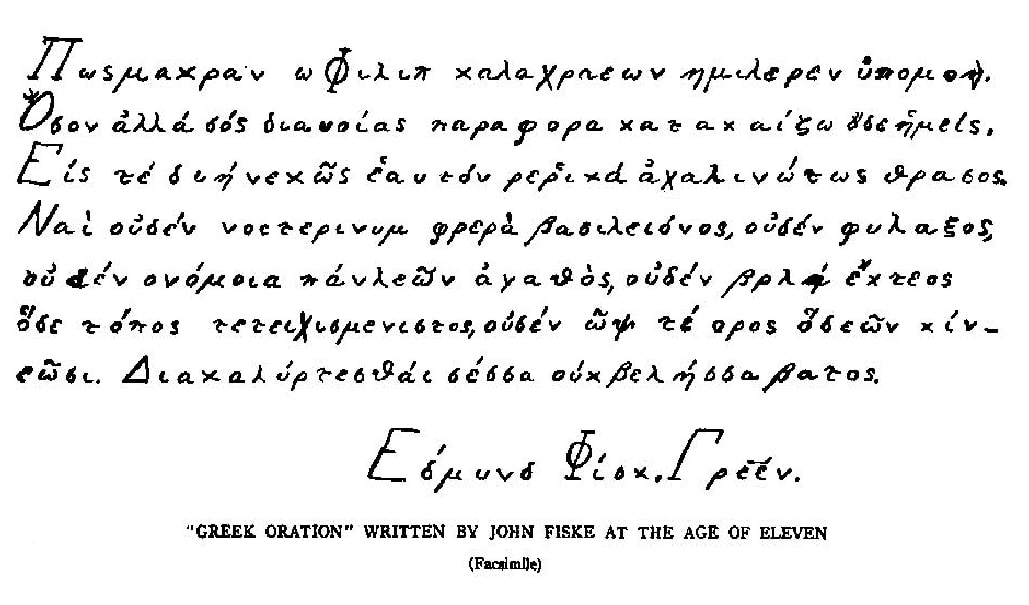 Πως μακραν ω Φιλιπ καλαχραεων ημιλερεν ὑπομον.
Ὅσον ἀλλά σός διανοίας παραφορα κατακαίζω ὅσε ἡμείς,
Είς τέ διήνεκῶς ἑαυτόν ρερῖκά ἀχαλινώτως θρασος.
Ναὶ οὐδέν νοστερινυμ φρερὰ βασιλειόνος, οὐδέν φυλαξος,
οὐδέν ονόμοια πάνλεῶν ἀγαθὸς, οὐδέν βρλή ἐκτεος
ὅδε τόπος τετειχισμενιστος, οὐδέν ὦψ τέ ορος ὅδεῶν κίν-
εῶσι. Διακαλύρτεσθάι σέσσα οὐκ βελήσσα βατος.
Εδμυνδ Φίσκ. Γρεέν.
"GREEK ORATION" WRITTEN BY JOHN FISKE AT THE AGE OF ELEVEN
(Facsimile)